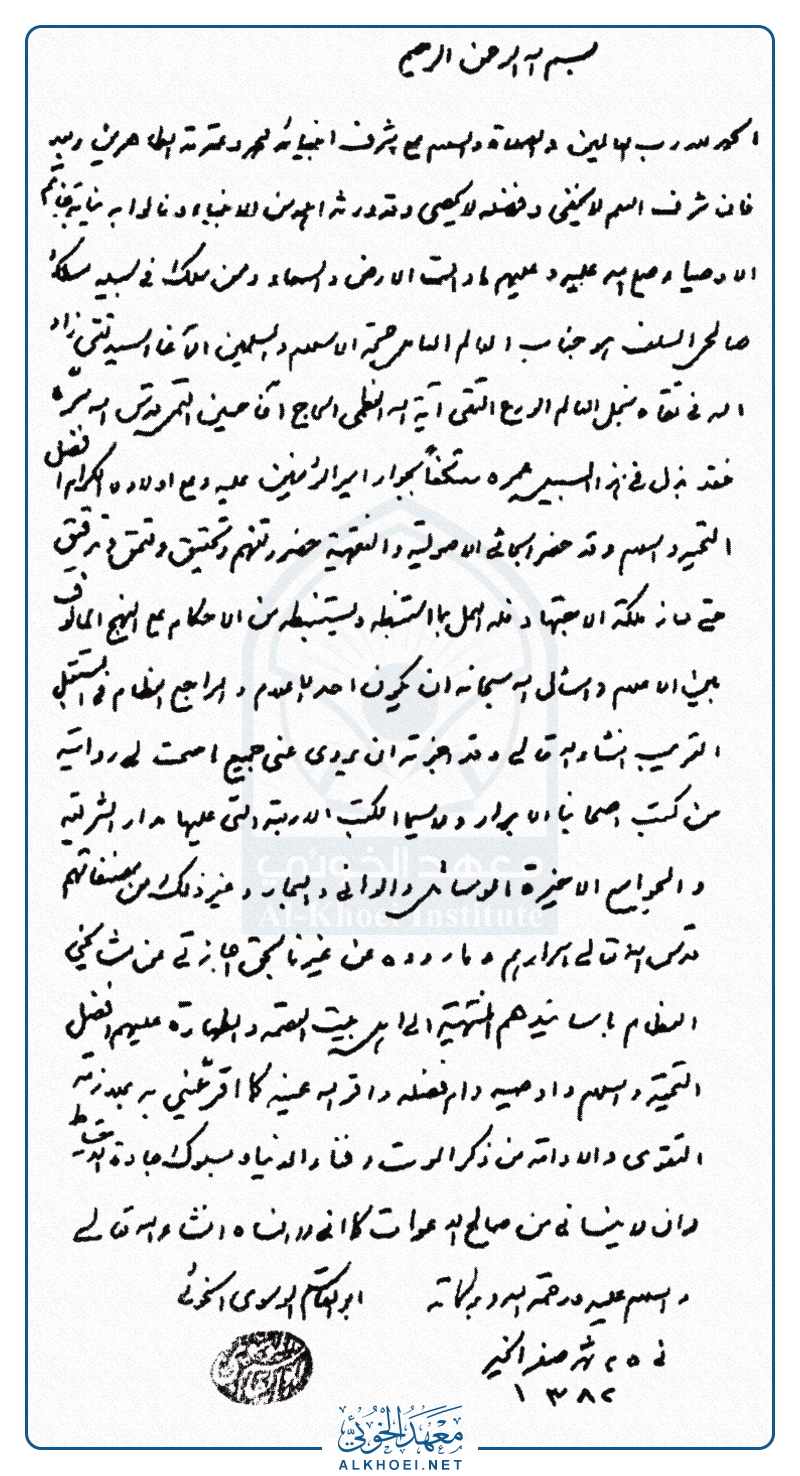 بسم الله الرحمن الرحيم
الحمد لله رب العالمين والصلاة والسلام على اشرف انبيائه محمد وعترته الطاهرين وبعد
فان شرف العلم لا يخفى وفضله لا يحصى وقد ورثه اهله من الانبياء ونالوا به نيابة خاتم
الاوصياء صلى الله عليه وعليهم ما دامت الارض والسماء وممن سلك في سبيله مسلك
صالحي السلف هو جناب العالم الفاضل حجة الاسلام والمسلمين الآغا السيد تقي زاد
الله في تقاه نجل العالم الورع التقي آية الله العظمى الحاج آقا حسين القمي قدس الله سره
فقد بذل في هذا السبيل عمره معتكفاً بجوار امير المؤمنين عليه وعلى اولاده الكرام افضل
التحية والسلام وقد حضر ابحاثي الاصولية والفقهية حضور تفهم وتحقيق وتعمق وتدقيق
حتى حاز ملكة الاجتهاد فله العمل بما استنبطه ويستنبطه من الاحكام على النهج المألوف
بين الاعلام واسأل الله سبحانه ان يكون احد الاعلام والمراجع العظام في المستقبل
القريب انشاء الله تعالى وقد اجزته ان يروي عني جميع ما صحت لي روايته
من كتب اصحابنا الابرار ولا سيما الكتب الاربعة التي عليها مدار الشريعة
والجوامع الاخيرة الوسائل والوافي والبحار وغير ذلك من مصنفاتهم
قدس الله تعالى اسرارهم وما رووه عن غيرنا بحق اجازتي عن مشايخي
العظام باسانيدهم المنتهية الى اهل بيت العصمة والطهارة عليهم افضل
التحية والسلام واوصيه دام فضله واقر الله عينيه كما اقر عيني به بملازمة
التقوى والادامة من ذكر الموت وفناء الدنيا وسلوك جادة الاحتياط
وان لا ينساني من صالح الدعوات كما اني لا انساه انشاء الله تعالى
والسلام عليه ورحمة الله وبركاته ابو القاسم الموسوي الخوئي
في ٢٥ شهر صفر الخير
١٣٨٢
معهد الخوئي
Al-Khoei Institute
معهد الخوئي
ALKHOEI.NET